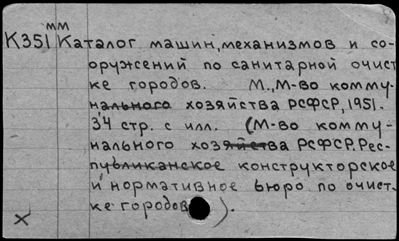 мм
К351 Каталог машин, механизмов и со-
оружений по санитарной очист
ке городов. М., М-во комму-
нального хозяйства РСФСР, 1951.
34 стр. с илл. (М-во комму-
нального хозяйства РСФСР. Рес-
публиканское конструкторское
и нормативное бюро по очист-
ке городов).
х